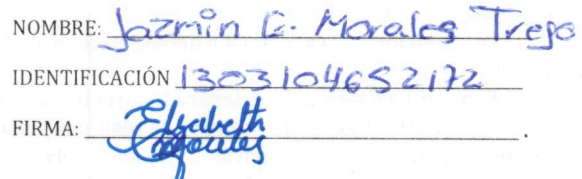 NOMBRE: Jazmin E. Morales Trejo
IDENTIFICACIÓN 1303104652172
FIRMA: Elizabeth Morales.